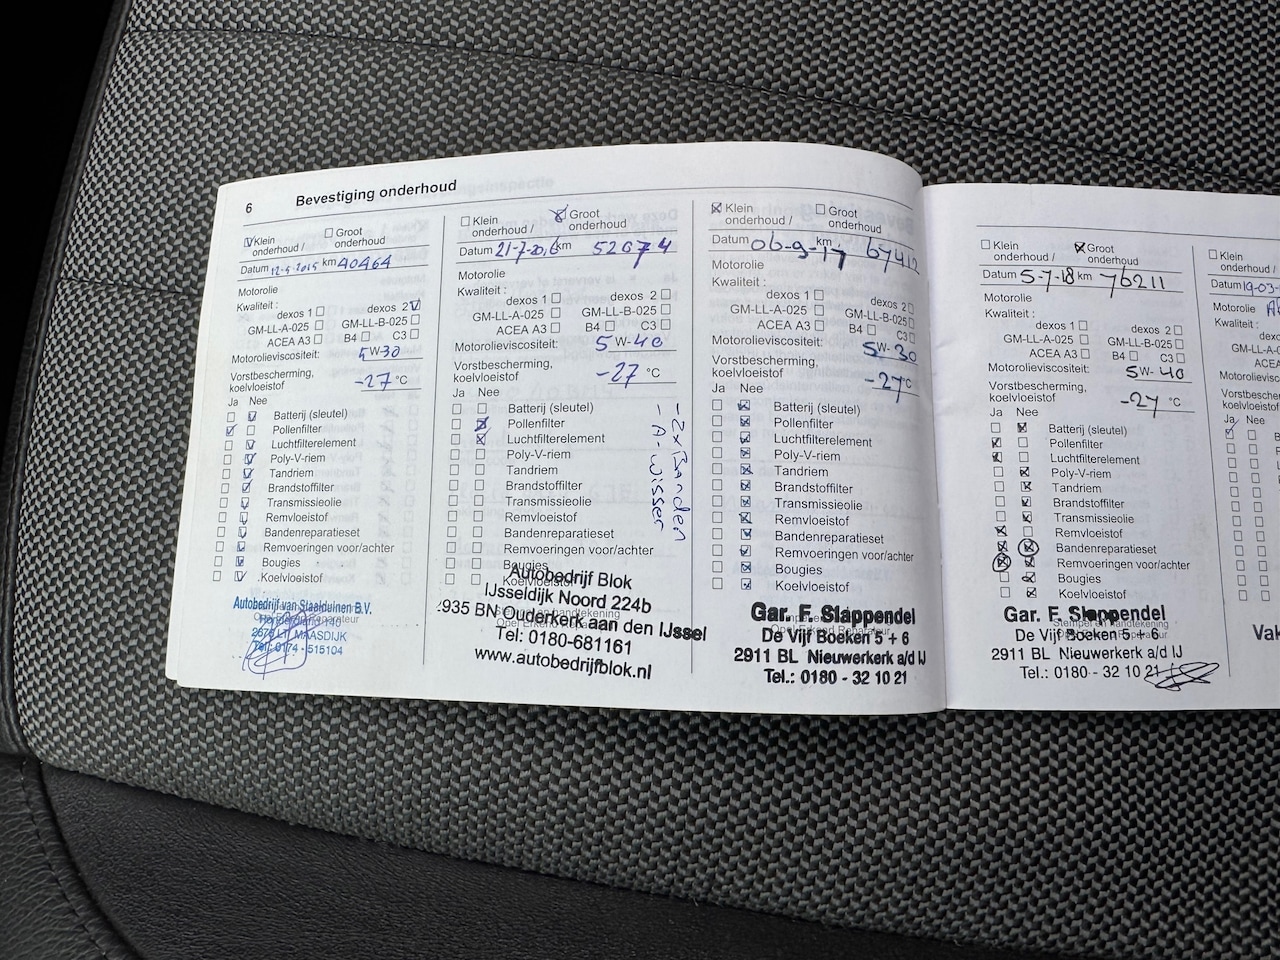 6 Bevestiging onderhoud
Klein onderhoud /
Groot onderhoud
Datum 12-5-2015 km 40464
Motorolie
Kwaliteit :
dexos 1 dexos 2
GM-LL-A-025 GM-LL-B-025
ACEA A3 B4 C3
Motorolieviscositeit: 5W-30
Vorstbescherming,
koelvloeistof -27 °C
Ja Nee
Batterij (sleutel)
Pollenfilter
Luchtfilterelement
Poly-V-riem
Tandriem
Brandstoffilter
Transmissieolie
Remvloeistof
Bandenreparatieset
Remvoeringen voor/achter
Bougies
Koelvloeistof
Autobedrijf van Staalduinen B.V.
MAASDIJK
Tel: 0174 - 515104
Klein onderhoud /
Groot onderhoud
Datum 21-7-2016 km 52674
Motorolie
Kwaliteit :
dexos 1 dexos 2
GM-LL-A-025 GM-LL-B-025
ACEA A3 B4 C3
Motorolieviscositeit: 5W-40
Vorstbescherming,
koelvloeistof -27 °C
Ja Nee
Batterij (sleutel)
Pollenfilter
Luchtfilterelement
Poly-V-riem
Tandriem
Brandstoffilter
Transmissieolie
Remvloeistof
Bandenreparatieset
Remvoeringen voor/achter
Bougies
Koelvloeistof
- 2x Banden
- A-wisser
Autobedrijf Blok
IJsseldijk Noord 224b
2935 BN Ouderkerk aan den IJssel
Stempel en handtekening
Opel Erkend Reparateur
Tel: 0180-681161
www.autobedrijfblok.nl
Klein onderhoud /
Groot onderhoud
Datum 06-9-17 km 67412
Motorolie
Kwaliteit :
dexos 1 dexos 2
GM-LL-A-025 GM-LL-B-025
ACEA A3 B4 C3
Motorolieviscositeit: 5W-30
Vorstbescherming,
koelvloeistof -27 °C
Ja Nee
Batterij (sleutel)
Pollenfilter
Luchtfilterelement
Poly-V-riem
Tandriem
Brandstoffilter
Transmissieolie
Remvloeistof
Bandenreparatieset
Remvoeringen voor/achter
Bougies
Koelvloeistof
Gar. F. Slappendel
De Vijf Boeken 5 + 6
2911 BL Nieuwerkerk a/d IJ
Tel.: 0180 - 32 10 21
Klein onderhoud /
Groot onderhoud
Datum 5-7-18 km 76211
Motorolie
Kwaliteit :
dexos 1 dexos 2
GM-LL-A-025 GM-LL-B-025
ACEA A3 B4 C3
Motorolieviscositeit: 5W-40
Vorstbescherming,
koelvloeistof -27 °C
Ja Nee
Batterij (sleutel)
Pollenfilter
Luchtfilterelement
Poly-V-riem
Tandriem
Brandstoffilter
Transmissieolie
Remvloeistof
Bandenreparatieset
Remvoeringen voor/achter
Bougies
Koelvloeistof
Gar. F. Slappendel
Stempel en handtekening
De Vijf Boeken 5 + 6
2911 BL Nieuwerkerk a/d IJ
Tel.: 0180 - 32 10 21
Klein
onderhoud /
Datum 19-03-
Motorolie
Kwaliteit :
GM-LL-A-0
ACEA
Motorolieviscos
Vorstbescherm
koelvloeistof
Ja Nee